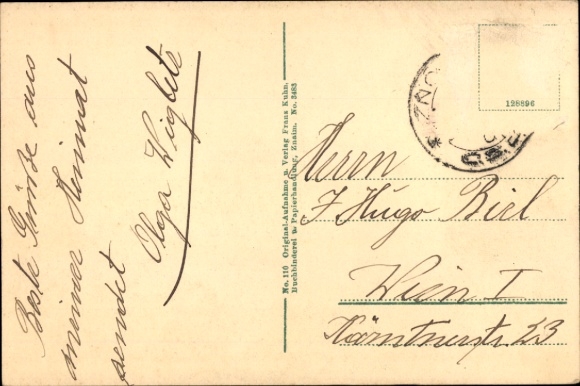 Beste Grüße aus
meiner Heimat
sendet
Olga
No. 110 Original-Aufnahme u. Verlag Franz Kuhn,
Buchbinderei u. Papierhandlung, Znaim. No. 3483
128896
ZNO
ČS
Herrn
Hugo Birl
Wien I
Kärntnerstr. 23